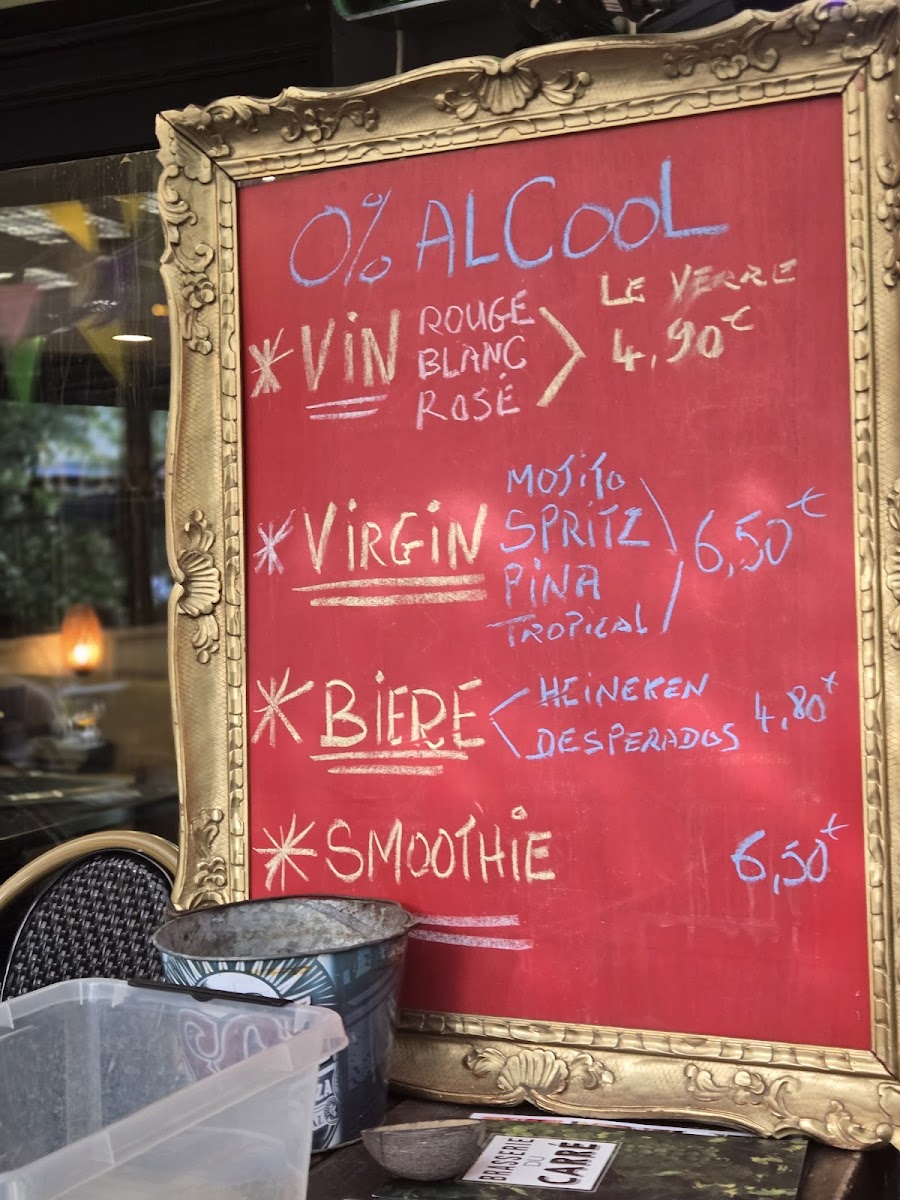 0% ALCOOL
* VIN ROUGE BLANC ROSÉ > LE VERRE 4,90€
* VIRGIN MOJITO SPRITZ PINA TROPICAL 6,50€
* BIERE < HEINEKEN DESPERADOS 4,80€
* SMOOTHIE 6,50€
BRASSERIE
DU
CARRÉ